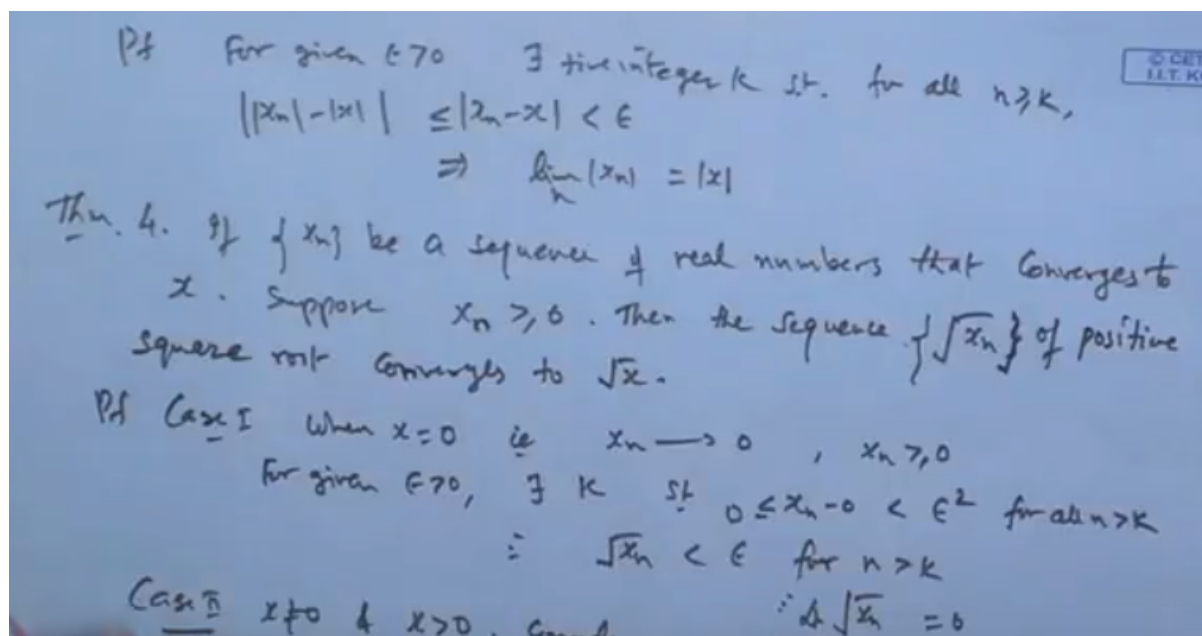 Pf For given ε>0 ∃ +ive integer K s.t. for all n≥K,
© CET
I.I.T. K
||xn|-|x|| ≤ |xn-x| < ε
⇒ lim n |xn| = |x|
Thm. 4. If {xn} be a sequence of real numbers that Converges to
x. Suppose xn ≥ 0. Then the sequence {√xn} of positive
square root converges to √x.
Pf Case I When x=0 ie xn → 0, xn ≥ 0
For given ε>0, ∃ K st 0 ≤ xn-0 < ε² for all n>K
∴ √xn < ε for n>K
∴ √xn = 0
Case II x≠0 & x>0.